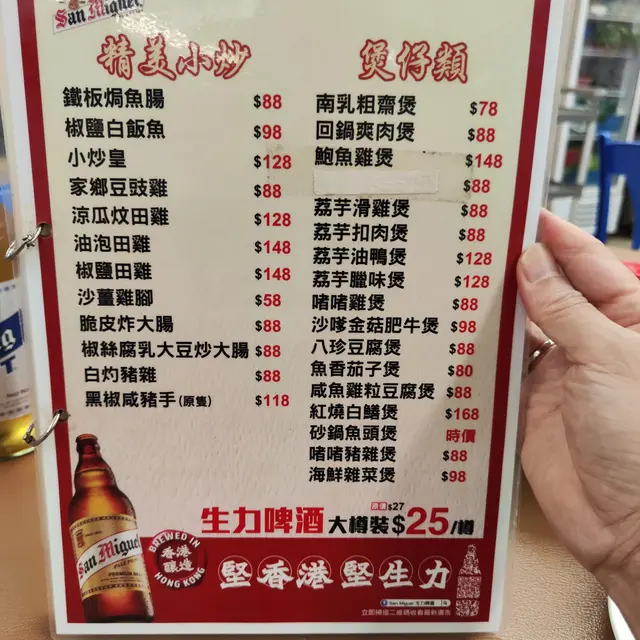 San Miguel
精美小炒
鐵板焗魚腸 $88
椒鹽白飯魚 $98
小炒皇 $128
家鄉豆豉雞 $88
涼瓜炆田雞 $128
油泡田雞 $148
椒鹽田雞 $148
沙薑雞腳 $58
脆皮炸大腸 $88
椒絲腐乳大豆炒大腸 $88
白灼豬雜 $88
黑椒咸豬手(原隻) $118
煲仔類
南乳粗齋煲 $78
回鍋爽肉煲 $88
鮑魚雞煲 $148
$88
荔芋滑雞煲 $88
荔芋扣肉煲 $88
荔芋油鴨煲 $128
荔芋臘味煲 $128
啫啫雞煲 $88
沙嗲金菇肥牛煲 $98
八珍豆腐煲 $88
魚香茄子煲 $80
咸魚雞粒豆腐煲 $88
紅燒白鱔煲 $168
砂鍋魚頭煲 時價
啫啫豬雜煲 $88
海鮮雜菜煲 $98
原價$27
生力啤酒 大樽裝$25/樽
BREWED IN
香港
釀造
HONG KONG
堅香港堅生力
San Miguel
San Miguel 生力啤酒
立即掃描二維碼收看最新廣告